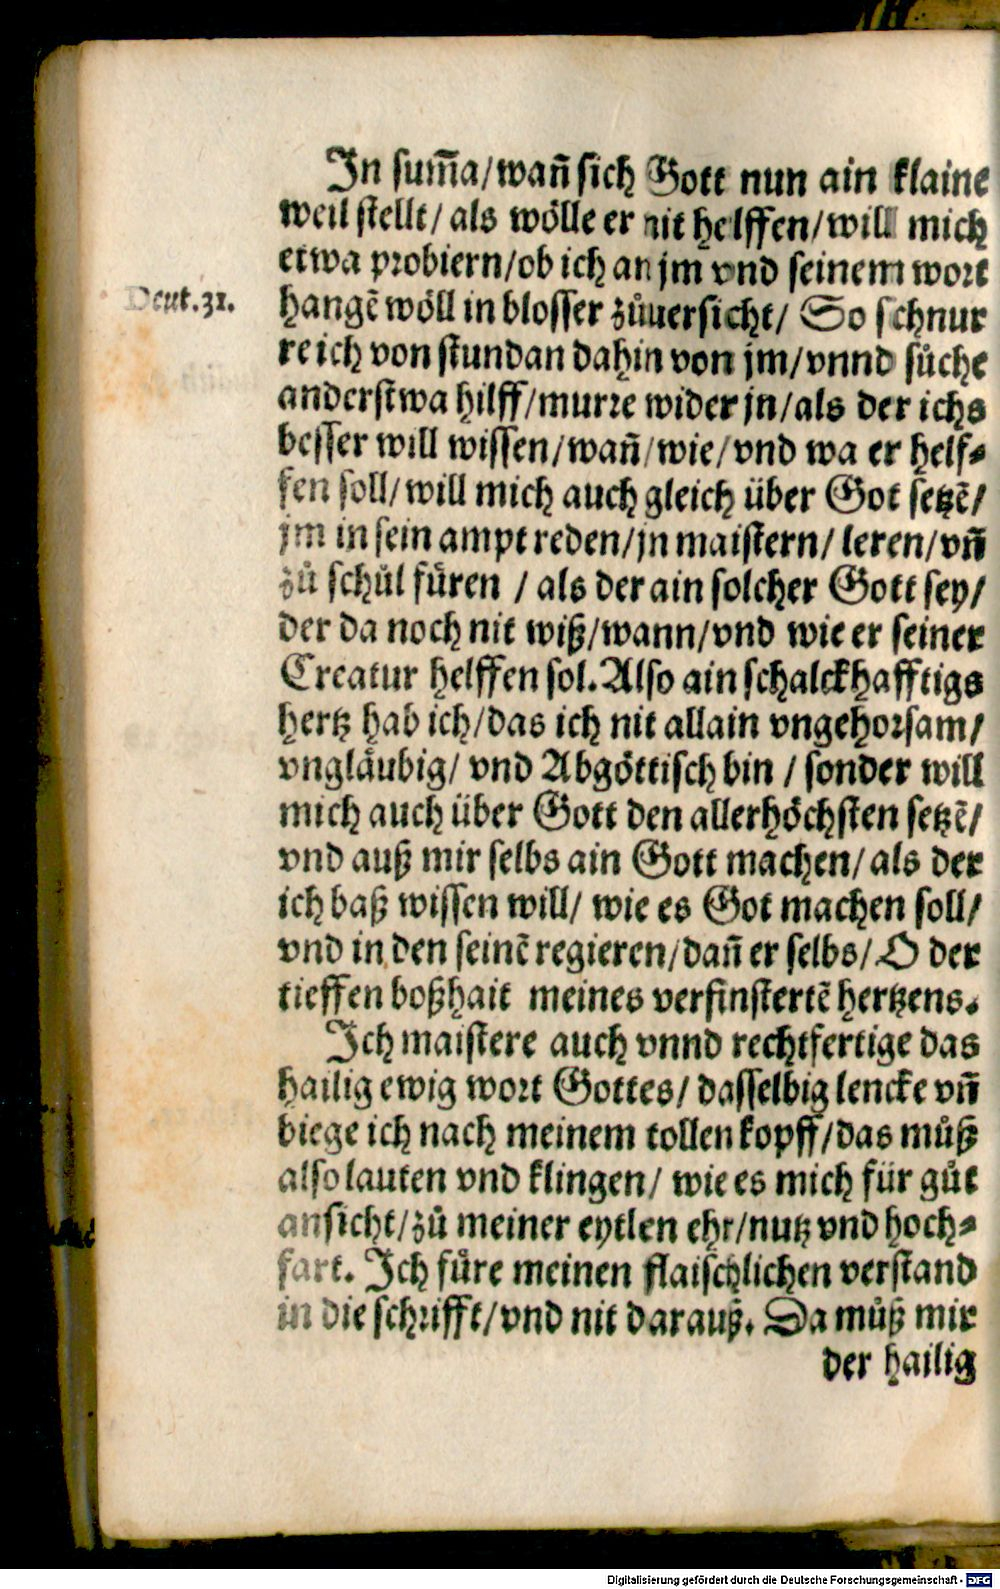 In sum̄a/wan̄ sich Gott nun ain klaine
weil stellt/ als wölle er nit helffen/will mich
etwa probiern/ob ich an jm vnd seinem wort
Deut.31.
hangẽ wöll in blosser zůuersicht/ So schnur
re ich von stundan dahin von jm/vnnd sůche
anderstwa hilff/murre wider jn/als der ichs
besser will wissen/wan̄/wie/vnd wa er helf⸗
fen soll/will mich auch gleich über Got setzẽ/
jm in sein ampt reden/jn maistern/ leren/vn̄
zů schůl fůren / als der ain solcher Gott sey/
der da noch nit wiß/wann/vnd wie er seiner
Creatur helffen sol. Also ain schalckhafftigs
hertz hab ich/das ich nit allain vngehorsam/
vngläubig/ vnd Abgöttisch bin / sonder will
mich auch über Gott den allerhöchsten setzẽ/
vnd auß mir selbs ain Gott machen/ als der
ich baß wissen will/ wie es Got machen soll/
vnd in den seinẽ regieren/dan̄ er selbs/ O der
tieffen boßhait meines verfinstertẽ hertzens.
Ich maistere auch vnnd rechtfertige das
hailig ewig wort Gottes/ dasselbig lencke vn̄
biege ich nach meinem tollen kopff/das můß
also lauten vnd klingen/ wie es mich für gůt
ansicht/zů meiner eytlen ehr/nutz vnd hoch⸗
fart. Ich fůre meinen flaischlichen verstand
in die schrifft/vnd nit darauß. Da můß mir
der hailig
Digitalisierung gefördert durch die Deutsche Forschungsgemeinschaft - DFG